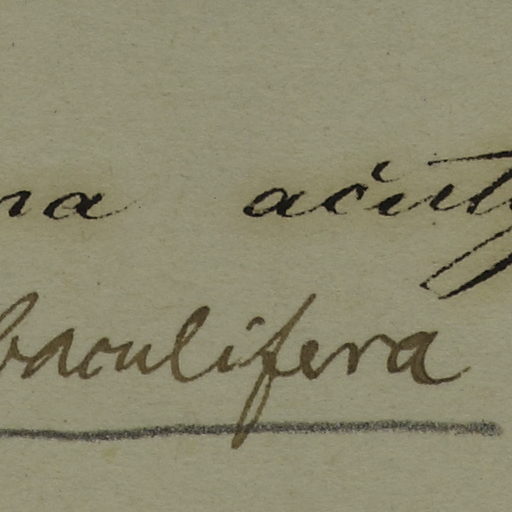 na acut
baculifera